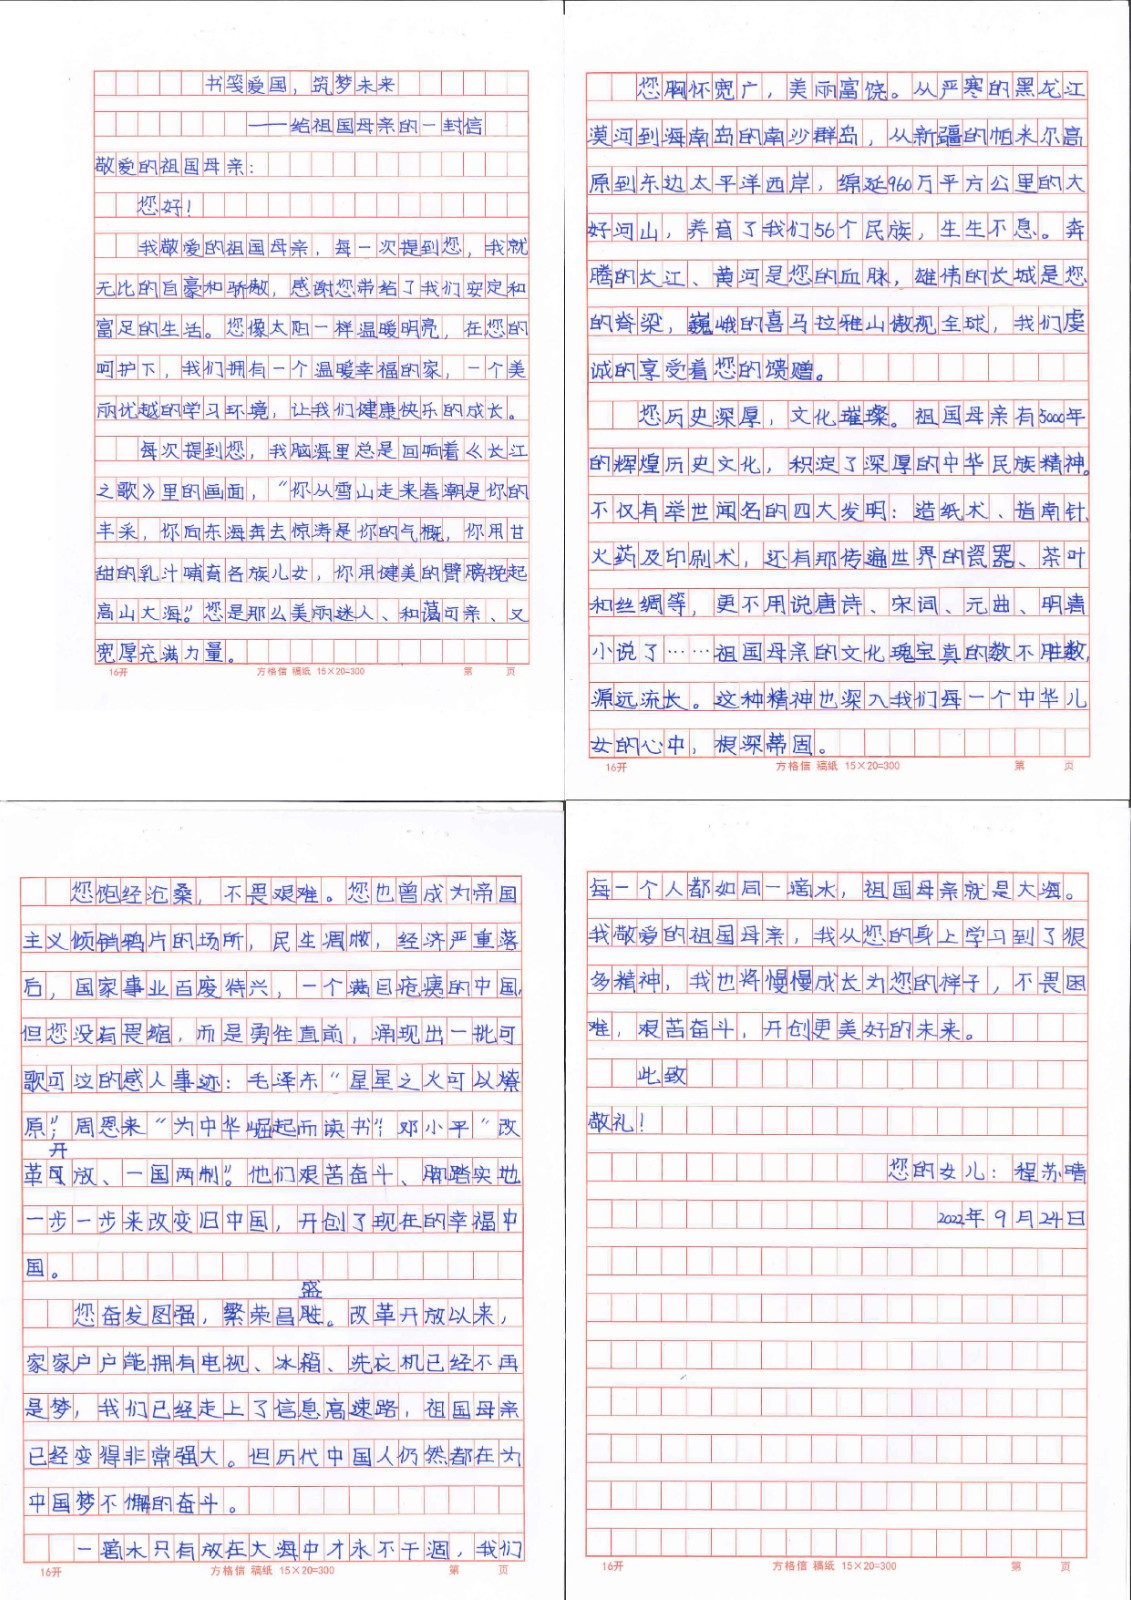 书笺爱国，筑梦未来
——给祖国母亲的一封信
敬爱的祖国母亲：
您好！
我敬爱的祖国母亲，每一次提到您，我就
无比的自豪和骄傲，感谢您带给了我们安定和
富足的生活。您像太阳一样温暖明亮，在您的
呵护下，我们拥有一个温暖幸福的家，一个美
丽优越的学习环境，让我们健康快乐的成长。
每次提到您，我脑海里总是回响着《长江
之歌》里的画面，“你从雪山走来春潮是你的
丰采，你向东海奔去惊涛是你的气概，你用甘
甜的乳汁哺育各族儿女，你用健美的臂膀挽起
高山大海。”您是那么美丽迷人、和蔼可亲、又
宽厚充满力量。
16开 方格信 稿纸 15×20=300 第 页
您胸怀宽广，美丽富饶。从严寒的黑龙江
漠河到海南岛的南沙群岛，从新疆的帕米尔高
原到东边太平洋西岸，绵延960万平方公里的大
好河山，养育了我们56个民族，生生不息。奔
腾的长江、黄河是您的血脉，雄伟的长城是您
的脊梁，巍峨的喜马拉雅山傲视全球，我们虔
诚的享受着您的馈赠。
您历史深厚，文化璀璨。祖国母亲有5000年
的辉煌历史文化，积淀了深厚的中华民族精神。
不仅有举世闻名的四大发明：造纸术、指南针、
火药及印刷术，还有那传遍世界的瓷器、茶叶
和丝绸等，更不用说唐诗、宋词、元曲、明清
小说了……祖国母亲的文化瑰宝真的数不胜数，
源远流长。这种精神也深入我们每一个中华儿
女的心中，根深蒂固。
16开 方格信 稿纸 15×20=300 第 页
您饱经沧桑，不畏艰难。您也曾成为帝国
主义倾销鸦片的场所，民生凋敝，经济严重落
后，国家事业百废待兴，一个满目疮痍的中国，
但您没有畏缩，而是勇往直前，涌现出一批可
歌可泣的感人事迹：毛泽东“星星之火可以燎
原”；周恩来“为中华崛起而读书”；邓小平“改
革开放、一国两制”。他们艰苦奋斗、脚踏实地
一步一步来改变旧中国，开创了现在的幸福中
国。
您奋发图强，繁荣昌盛。改革开放以来，
家家户户能拥有电视、冰箱、洗衣机已经不再
是梦，我们已经走上了信息高速路，祖国母亲
已经变得非常强大。但历代中国人仍然都在为
中国梦不懈的奋斗。
一滴水只有放在大海中才永不干涸，我们
16开 方格信 稿纸 15×20=300 第 页
每一个人都如同一滴水，祖国母亲就是大海。
我敬爱的祖国母亲，我从您的身上学习到了很
多精神，我也将慢慢成长为您的样子，不畏困
难，艰苦奋斗，开创更美好的未来。
此致
敬礼！
您的女儿：程苏晴
2022年9月24日
16开 方格信 稿纸 15×20=300 第 页